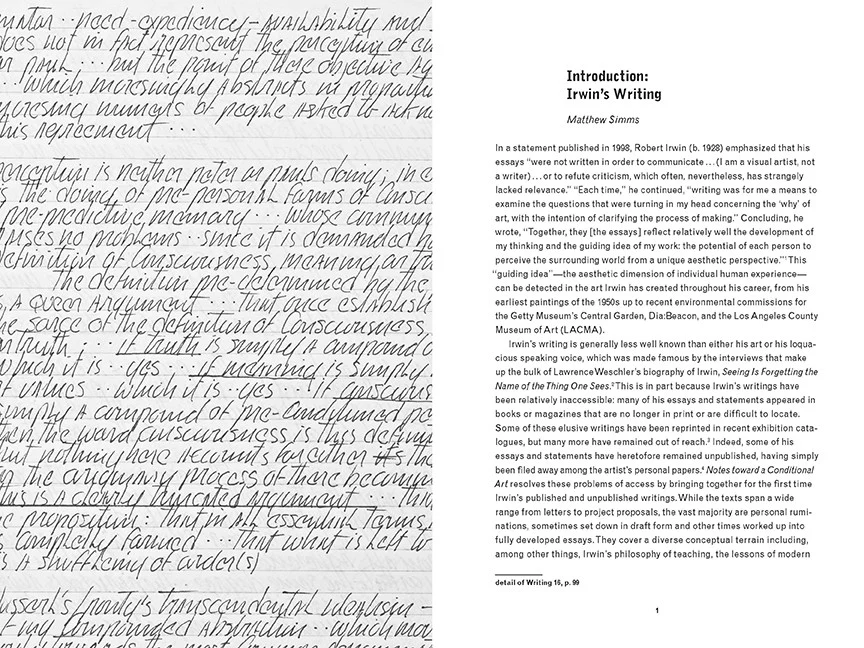 need-expediency-availability and
does not in fact represent the perception of
but the point of these objective
which increasingly abstracts in
increasing numbers of people asked to
this agreement ...
perception is neither
is the doing of pre-personal forms of
pre-predictive memory ... whose
no problems .. since it is demanded
definition of consciousness, meaning, or
the definition pre-determined by the
a queer argument ... that once
the source of the definition of consciousness,
or truth ; ... if truth is simply a compound
which it is .. yes ... if meaning is simply
of values .. which it is .. yes ... if
simply a compound of pre-conditioned
then the word consciousness is thus
but nothing here accounts for either the
or the ongoing process of there
this is a clearly truncated argument ...
proposition: that in all essential terms,
is completely formed ... that what is left to
is a shuffling of order(s)
transcendental idealism -
my compounded abstraction .. which
Introduction:
Irwin's Writing
Matthew Simms
In a statement published in 1998, Robert Irwin (b. 1928) emphasized that his
essays “were not written in order to communicate . . . (I am a visual artist, not
a writer) . . . or to refute criticism, which often, nevertheless, has strangely
lacked relevance.” “Each time,” he continued, “writing was for me a means to
examine the questions that were turning in my head concerning the ‘why’ of
art, with the intention of clarifying the process of making.” Concluding, he
wrote, “Together, they [the essays] reflect relatively well the development of
my thinking and the guiding idea of my work: the potential of each person to
perceive the surrounding world from a unique aesthetic perspective.”¹ This
“guiding idea”—the aesthetic dimension of individual human experience—
can be detected in the art Irwin has created throughout his career, from his
earliest paintings of the 1950s up to recent environmental commissions for
the Getty Museum's Central Garden, Dia:Beacon, and the Los Angeles County
Museum of Art (LACMA).
Irwin's writing is generally less well known than either his art or his loqua-
cious speaking voice, which was made famous by the interviews that make
up the bulk of Lawrence Weschler's biography of Irwin, Seeing Is Forgetting the
Name of the Thing One Sees.² This is in part because Irwin's writings have
been relatively inaccessible: many of his essays and statements appeared in
books or magazines that are no longer in print or are difficult to locate.
Some of these elusive writings have been reprinted in recent exhibition cata-
logues, but many more have remained out of reach.³ Indeed, some of his
essays and statements have heretofore remained unpublished, having simply
been filed away among the artist's personal papers.⁴ Notes toward a Conditional
Art resolves these problems of access by bringing together for the first time
Irwin's published and unpublished writings. While the texts span a wide
range from letters to project proposals, the vast majority are personal rumi-
nations, sometimes set down in draft form and other times worked up into
fully developed essays. They cover a diverse conceptual terrain including,
among other things, Irwin's philosophy of teaching, the lessons of modern
detail of Writing 16, p. 99
1